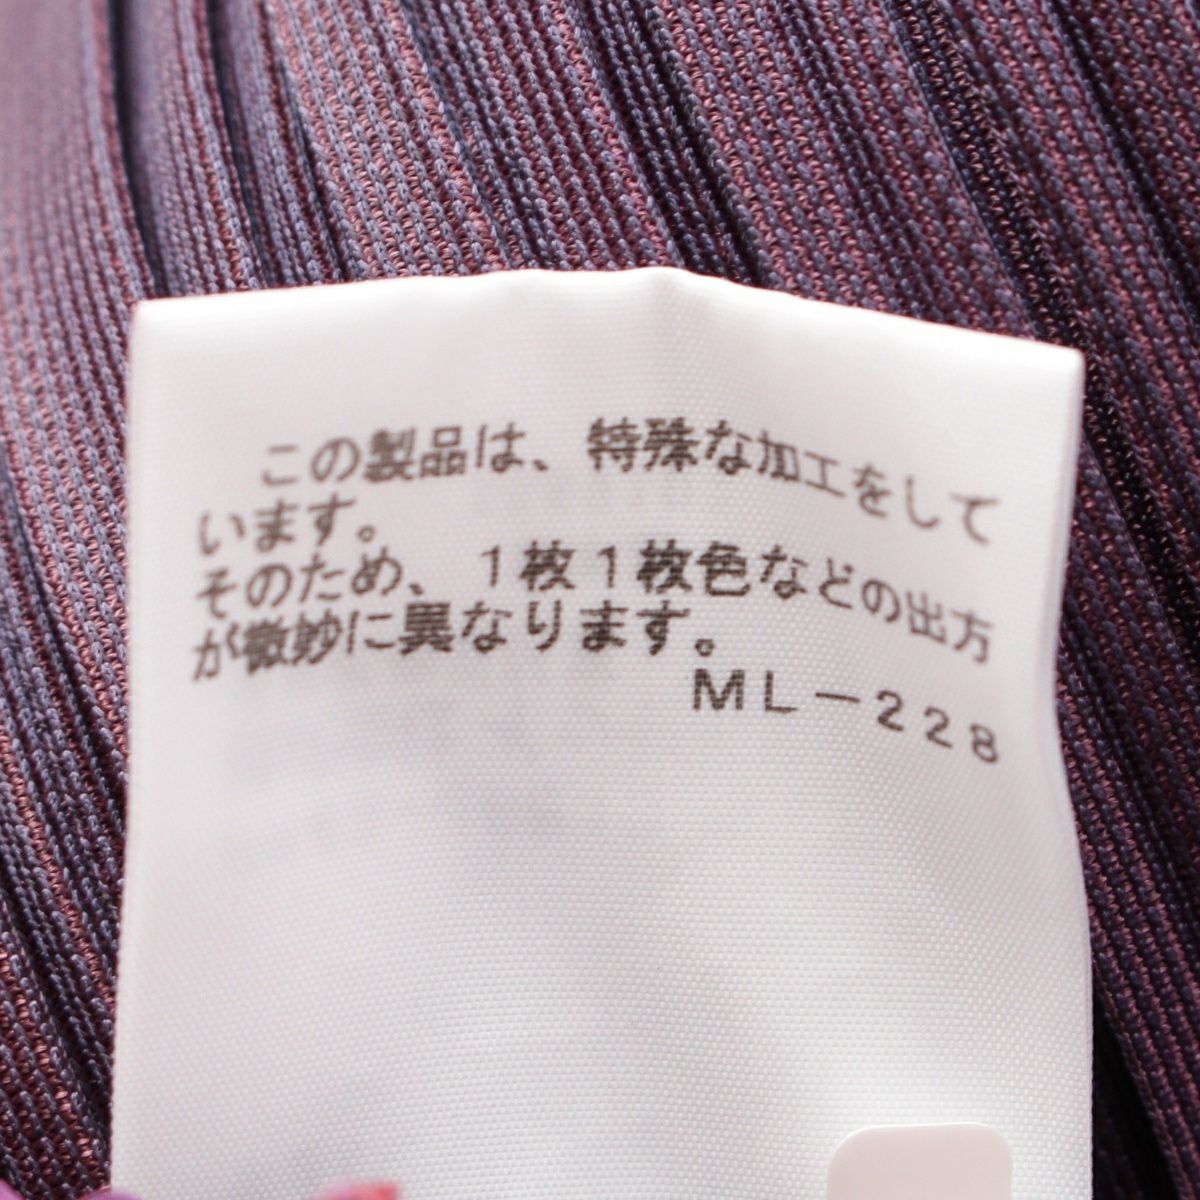 この製品は、特殊な加工をして
います。
そのため、１枚１枚色などの出方
が微妙に異なります。
ＭＬ－２２８